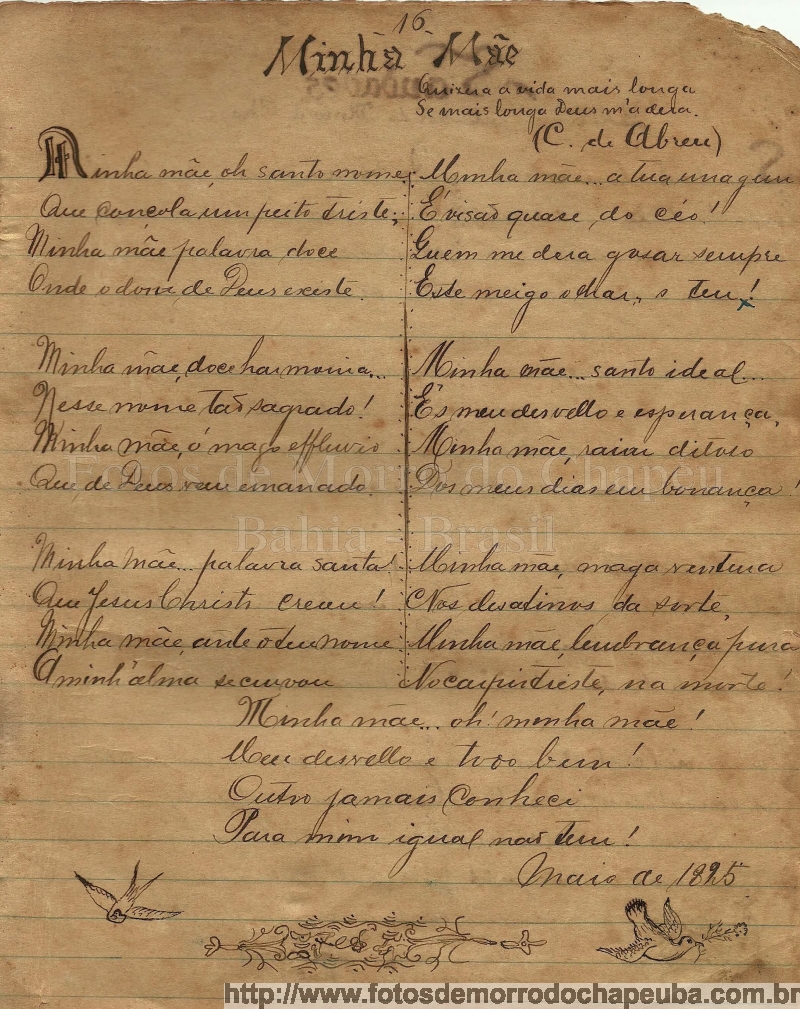 16.
Minha Mãe
Quizera a vida mais longa
Se mais longa Deus m'a dera.
(C. de Abreu)
Minha mãe, oh santo nome
Que conçola um peito triste;
Minha mãe palavra doce
Onde o dom, de Deus existe.
Minha mãe, doce harmonia...
Nesse nome tão sagrado!
Minha mãe, ó mago effluvio
Que, de Deus vem emanado.
Minha Mãe... palavra santa!
Que Jesus Christo creou!
Minha mãe, ante o teu nome
A minh'alma se curvou
Minha mãe... a tua imagem
É visão quase do céo!
Quem me dera gosar sempre
Este meigo olhar, o teu!
Minha mãe... santo ideal...
És meu desvello e esperança,
Minha mãe, raiar ditoso
Dos meus dias em bonança!
Minha mãe, maga ventura
Nos desatinos da sorte,
Minha mãe, lembrança pura
No carpir triste, na morte!
Minha mãe... oh! minha mãe!
Meu desvello e todo bem!
Outro jamais conheci
Para mim igual não tem!
Maio de 1825
Fotos de Morro do Chapéu
Bahia - Brasil
http://www.fotosdemorrodochapeuba.com.br